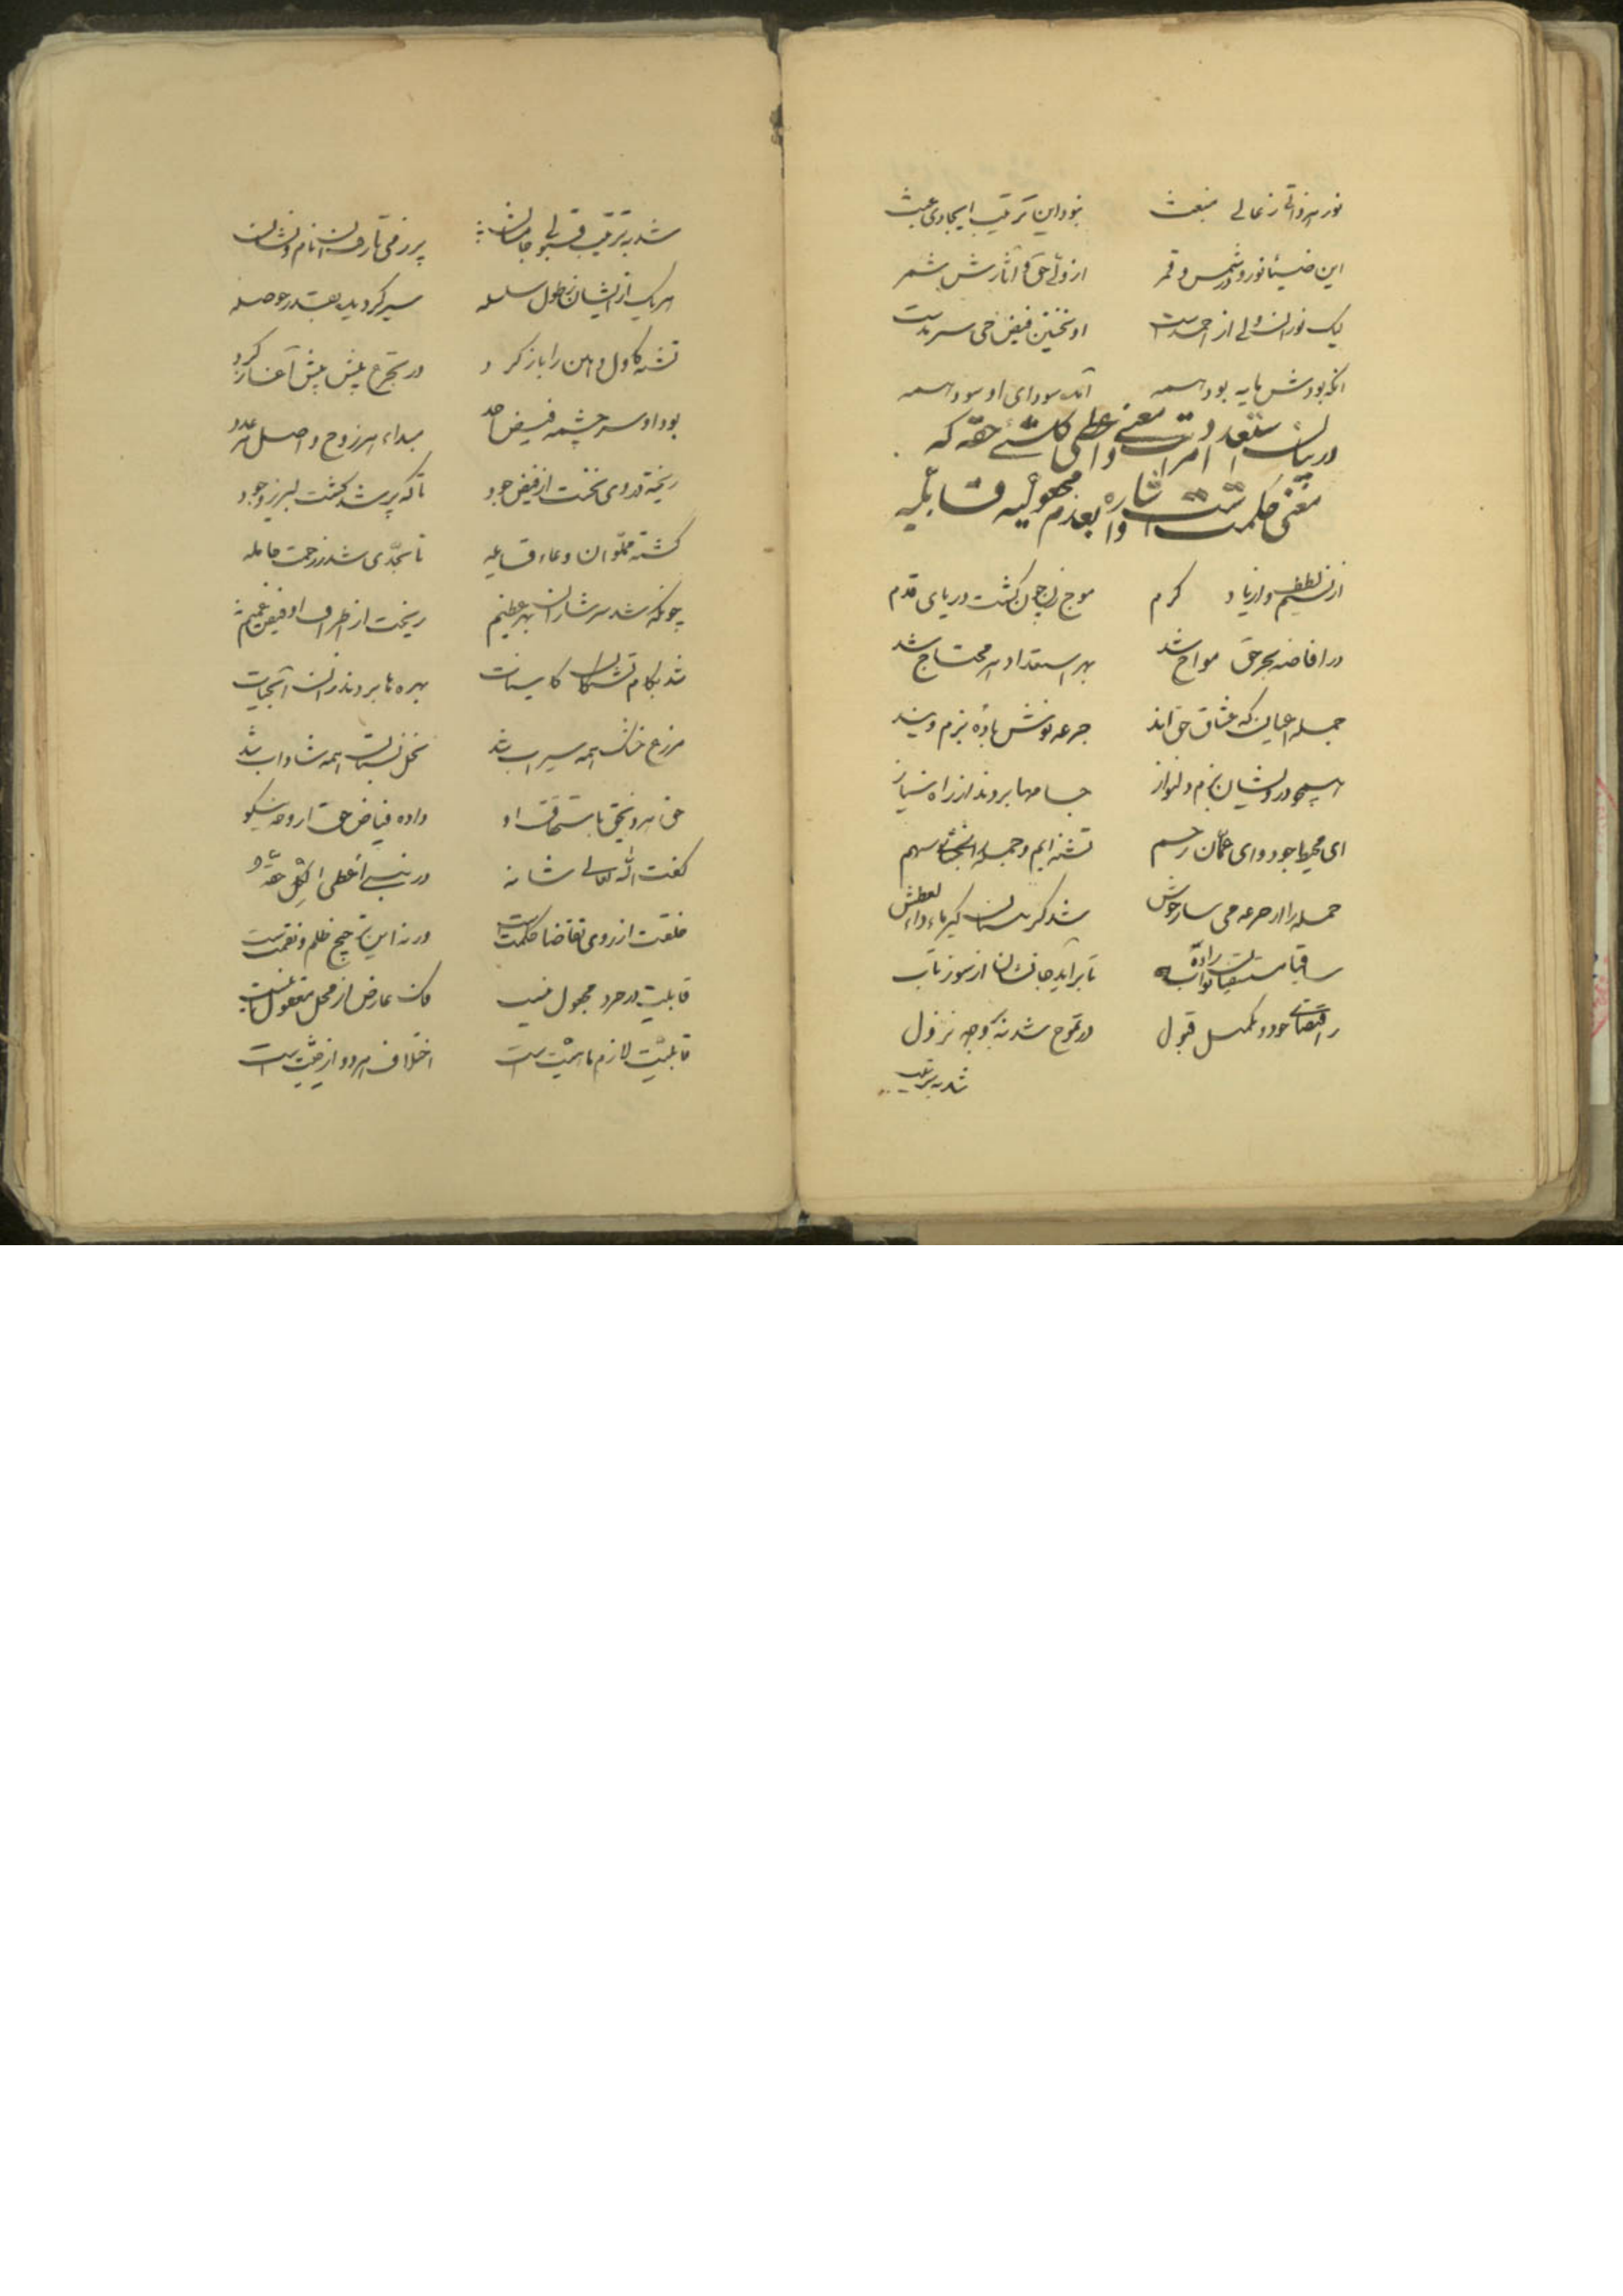 نور هر ذاتی ز عالی منبعث نبود این ترتیب ایجادی عبث
این ضیا و نور در شمس و قمر از ولی حق و آثارش شمر
لیک نور آن ولی از احمدست او نخستین فیض حی سرمدست
آنکه بودش مایه بود همه آنکه سودای او سود همه
در بیان استعدادات و معنی اعطی کل شیء حقه که
معنی حکمت است و اشاره بعدم مجعولیه قابلیه
از نسیم لطف و ازیاد کرم موج زن چون گشت دریای قدم
در افاضه بحر حق مواج شد بهر استعداد هر محتاج شد
جمله اعیان که عشاق حق‌اند جرعه نوش باده بزم ویند
همچو درویشان بزم دلنواز جامها بردند از راه نیاز
ای محیط جود و ای عمان رحم تشنه ایم و جمله را سهم
جمله را از جرعه می ساز خوش شد گریبان گیر ماء داء العطش
ساقیا مستسقیان را ده تا برآید جانشان از سوز تاب
ز اقتضای جود و تکمیل قبول در تموج شد نه بر وجه نزول
شد به ترتیب
شد به ترتیب قبولی جامشان پر ز می تا رفت از آن نام و نشان
هر یک از ایشان ز طول سلسله سیر گردید بقدر حوصله
تشنه کاول دهن را باز کرد در تجرع پیش پیش آغاز کرد
بود او سرچشمه فیض احد مبداء هر زوج و اصل هر عدد
ریخته در وی نخست از فیض جود تا که پر شد گشت لبریز وجود
گشته مملو آن وعاء قابله تا بحدی شد ز رحمت حامله
چونکه شد سرشار آن بهر عظیم ریخت از اطراف او فیض عمیم
شد بکام تشنگان کاینات بهره ها بردند از آن آب حیات
مزرع خاک همه سیراب شد نخل نسبت همه شاداب شد
حق هر ذیحق باستحقاق او داده فیاض حق از وجه نیکو
گفت الله تعالی شانه در نبی اعطی لکل حقه
خلقت از روی تقاضا حکمت است ورنه این ترجیح ظلم و نقمت است
قابلیت در خرد مجعول نیست فک عارض از محل معقول نیست
قابلیت لازم ماهیت است اختلاف هر دو از حیثیت است